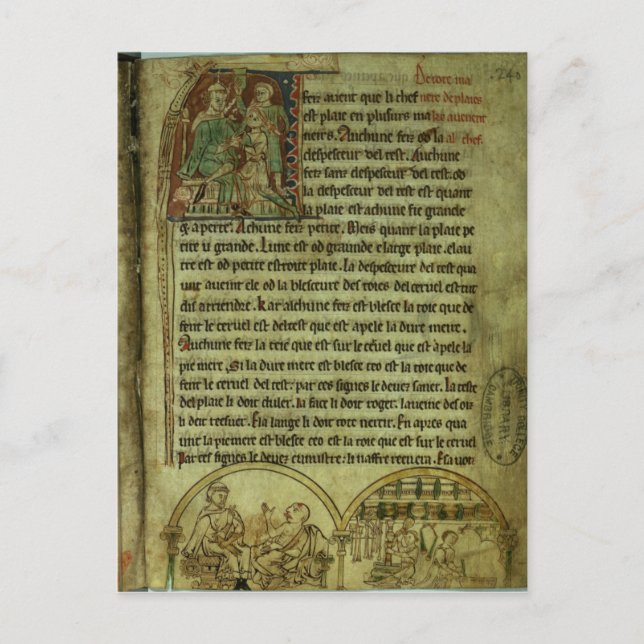 De tote ma
.240
feiz avient que li chef nere de plaies
est plaie en plusurs ma ki avenent
neirs. Auchune feiz od la al chef.
despesceur del test. Auchune
feiz sanz despesceur del test. od
la despesceur del test est quant
la plaie est achune fie grande
e aperte. Achune feiz petite. Meis quant la plaie pe
tite u grande. Lune est od graunde e large plaie. elau
tre est od petite estroite plaie. la despesceure del test qua
unt avient ele od la blesceure des toies del cervel estut
dis atriendre. Kar alchune feiz est blesce la toie que de
fent le cervel est deltest que est apele la dure mere.
Auchune feiz la toie que est sur le cervel que est apele la
pie mere. Si la dure mere est blesce ceo est la toie que de
fent le cervel del test. par ces signes le devez saver. la teste
del plaie li doit duler. la face li doit roger. la veue des oilz
li deit tresuer. E la lange li doit tote nercir. En apres qua
unt la pie mere est blesce ceo est la toie que est sur le cervel
Par ces signes le devez cunustre. li naffre recuera. E sa voiz
LIBRARY
CAMBRIDGE